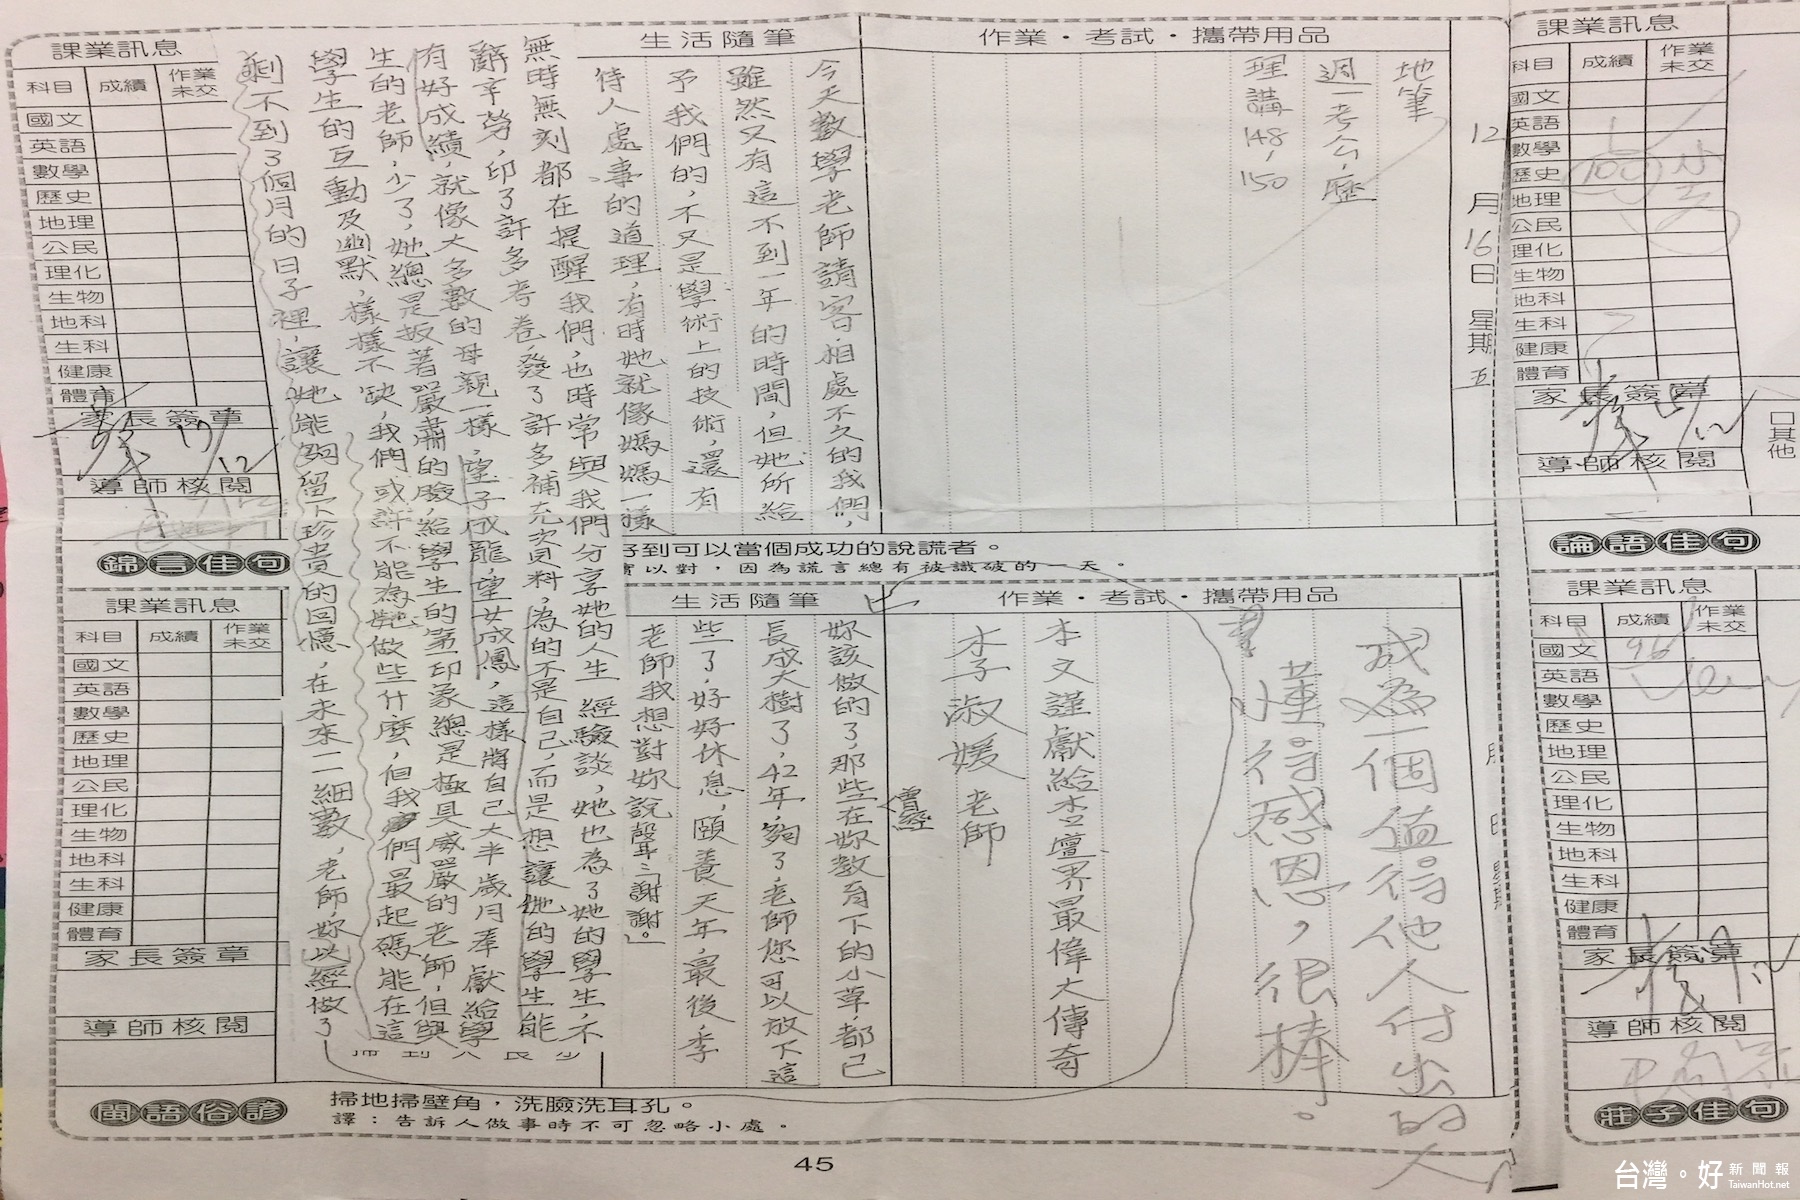 作業·考試·攜帶用品
12月16日星期五
地筆
週一考公,歷
理講148,150
生活隨筆
今天數學老師請客,相處不久的我們,
雖然又有這不到一年的時間,但她所給
予我們的,不又是學術上的技術,還有
待人處事的道理,有時她就像媽媽一樣
無時無刻都在提醒我們,也時常與我們分享她的人生經驗談,她也為了她的學生,不
辭辛勞,印了許多考卷,發了許多補充資料,為的不是自己,而是想讓她的學生能
有好成績,就像大多數的母親一樣,望子成龍,望女成鳳,這樣將自己大半歲月奉獻給學
生的老師,少了,她總是板著嚴肅的臉,給學生的第印象總是極具威嚴的老師,但與
學生的互動及幽默,樣樣不缺,我們或許不能為她做些什麼,但我們最起碼能在這
剩不到3個月的日子裡,讓她能夠留下珍貴的回憶,在未來一一細數,老師,妳以經做了
妳該做的了,那些在妳教育下的小草,都已
曾經
長成大樹了,42年,夠了,老師您可以放下這
些了,好好休息,頤養天年,最後,李
老師我想對妳說聲:「謝謝」。
成為一個值得他人付出的人
懂得感恩,很棒。
本文謹獻給杏壇界最偉大傳奇
李淑媛老師
課業訊息
科目 成績 作業未交
國文
英語
數學
歷史
地理
公民
理化
生物
地科
生科
健康
體育
家長簽章
17/12
導師核閱
錦言佳句
好到可以當個成功的說謊者。
實以對,因為謊言總有被識破的一天。
作業·考試·攜帶用品
生活隨筆
課業訊息
科目 成績 作業未交
國文
英語
數學
歷史
地理
公民
理化
生物
地科
生科
健康
體育
家長簽章
導師核閱
閩語俗諺
掃地掃壁角,洗臉洗耳孔。
譯:告訴人做事時不可忽略小處。
45
課業訊息
科目 成績 作業未交
國文
英語
數學
歷史 100
地理
公民
理化
生物
地科
生科
健康
體育
家長簽章
導師核閱
□其他
論語佳句
課業訊息
科目 成績 作業未交
國文 96
英語
數學
歷史
地理
公民
理化
生物
地科
生科
健康
體育
家長簽章
導師核閱
莊子佳句
台灣。好新聞報
TaiwanHot.net